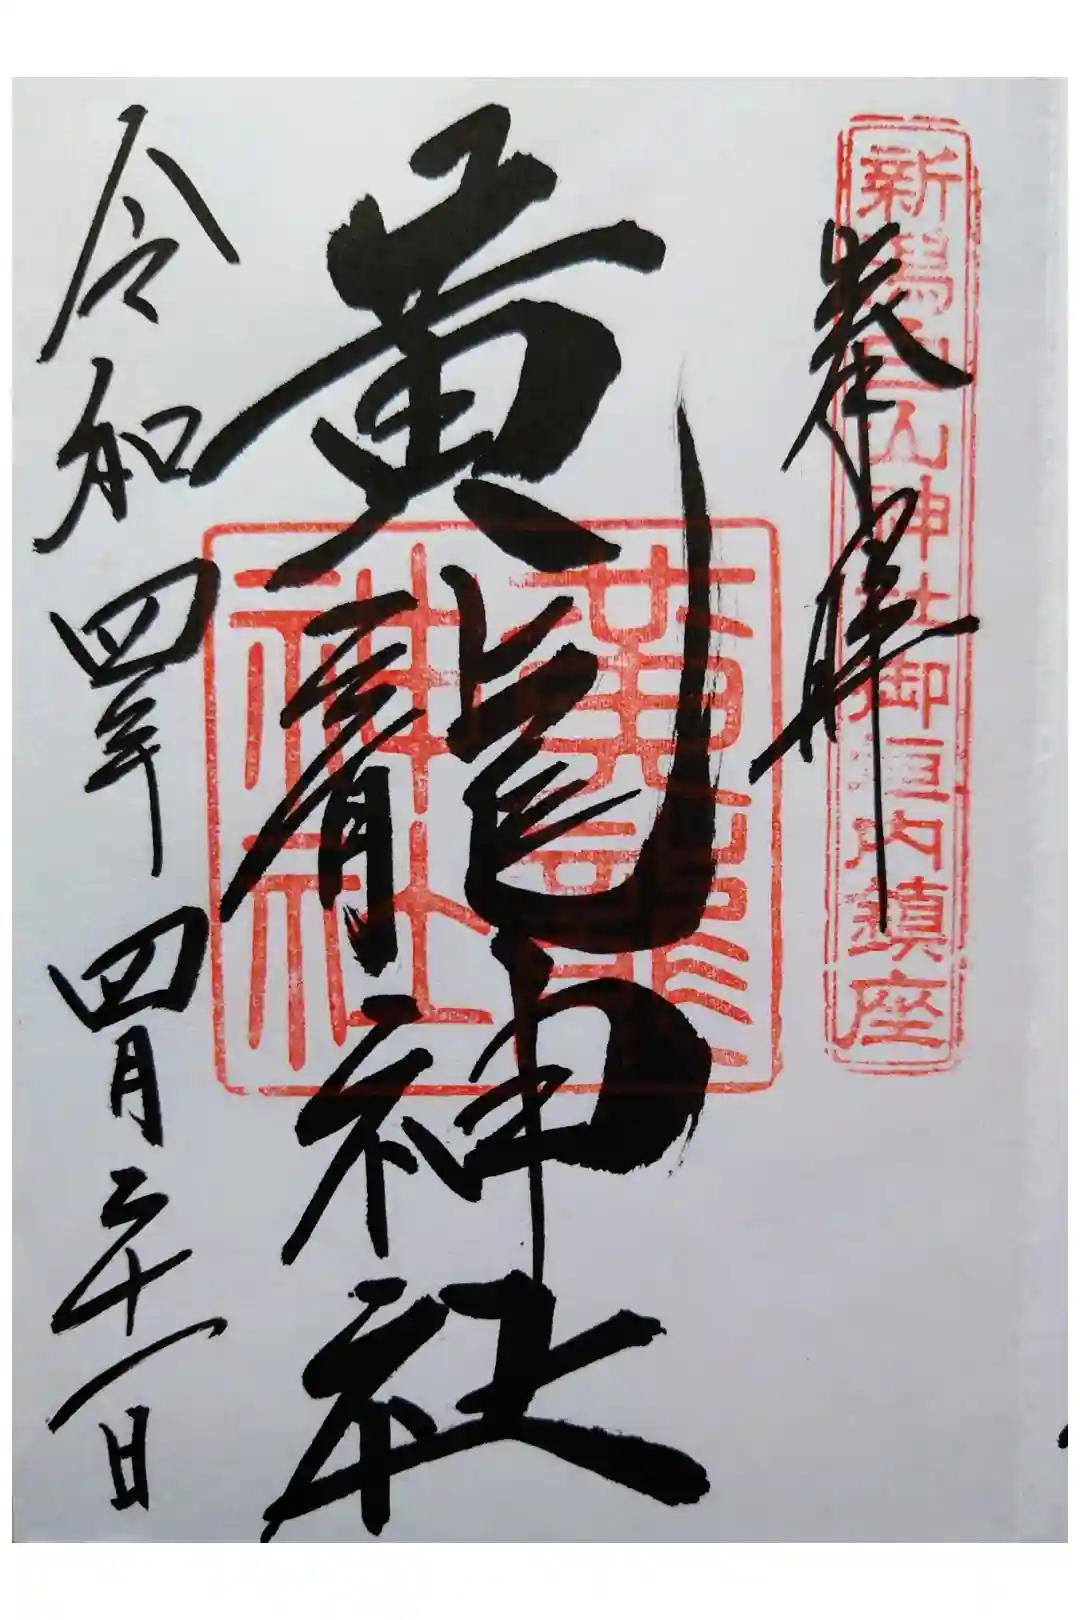 新潟白山神社御垣内鎮座
奉拝
黄龍神社
黄龍神社
令和四年四月二十一日